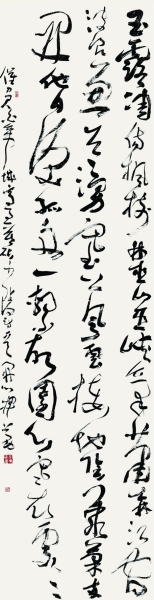 玉露凋傷楓樹林巫山巫峽氣蕭森江間
波浪兼天湧塞上風雲接地陰叢菊兩
開他日淚孤舟一繫故園心寒衣處〻
催刀尺白帝城高急暮砧